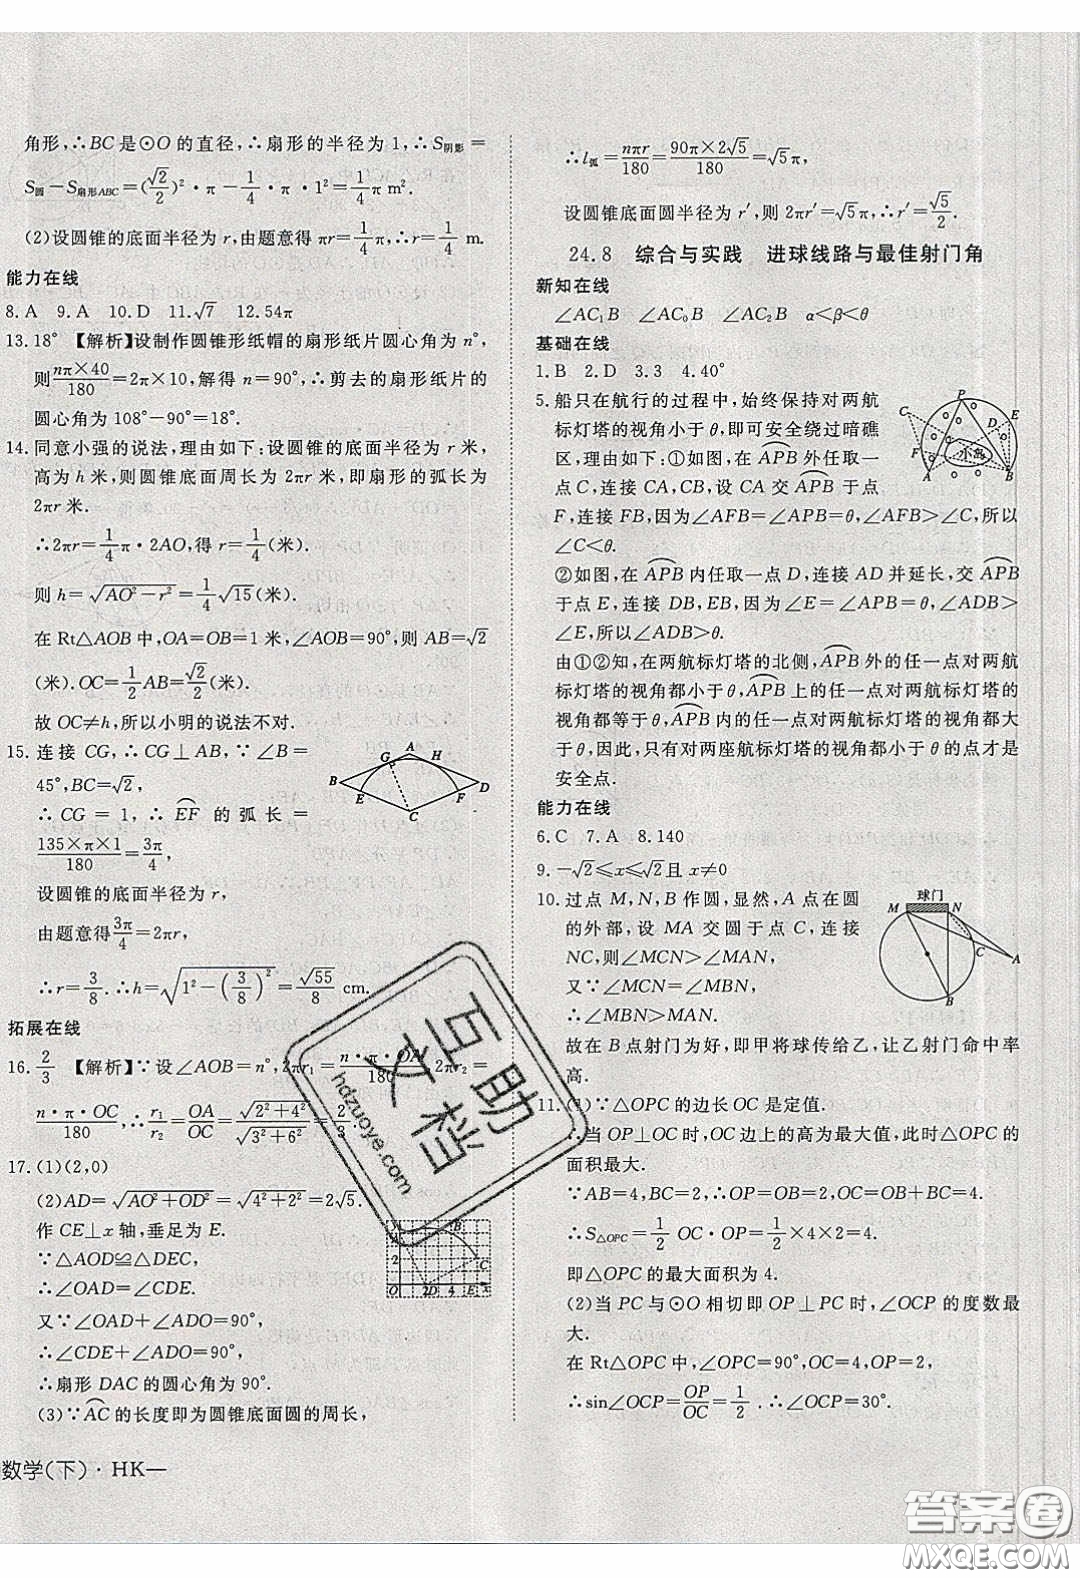 角形,∴BC是⊙O的直径,∴扇形的半径为1,∴S阴影=
S圆-S扇形ABC=(√2/2)²·π-1/4·π·1²=1/4π m².
(2)设圆锥的底面半径为r,由题意得πr=1/4π,∴r=1/4 m.
能力在线
8.A 9.A 10.D 11.√7 12.54π
13.18° 【解析】设制作圆锥形纸帽的扇形纸片圆心角为n°,
则nπ×40/180=2π×10,解得n=90°,∴剪去的扇形纸片的
圆心角为108°-90°=18°.
14.同意小强的说法,理由如下:设圆锥的底面半径为r米,
高为h米,则圆锥底面周长为2πr,即扇形的弧长为
2πr米.
∴2πr=1/4π·2AO,得r=1/4(米).
则h=√(AO²-r²)=1/4√15(米).
在Rt△AOB中,OA=OB=1米,∠AOB=90°,则AB=√2
(米).OC=1/2AB=√2/2(米).
故OC≠h,所以小明的说法不对.
15.连接CG,∴CG⊥AB,∵∠B=
45°,BC=√2,
∴CG=1,∴EF⌒的弧长=
135×π×1/180=3π/4,
设圆锥的底面半径为r,
由题意得3π/4=2πr,
∴r=3/8.∴h=√(1²-(3/8)²)=√55/8 cm.
A
G
H
B
D
E
F
C
拓展在线
16.2/3 【解析】∵设∠AOB=n°,2πr₁=n·π·OA/180,2πr₂=
n·π·OC/180,∴r₁/r₂=OA/OC=√(2²+4²)/√(3²+6²)=2/3.
17.(1)(2,0)
(2)AD=√(AO²+OD²)=√(4²+2²)=2√5.
作CE⊥x轴,垂足为E.
∵△AOD≌△DEC,
∴∠OAD=∠CDE.
又∵∠OAD+∠ADO=90°,
∴∠CDE+∠ADO=90°,
∴扇形DAC的圆心角为90°.
(3)∵AC⌒的长度即为圆锥底面圆的周长,
A
B
2
C
O
2D
4
E
x
数学(下)·HK—
∴l弧=nπr/180=90π×2√5/180=√5π,
设圆锥底面圆半径为r′,则2πr′=√5π,∴r′=√5/2.
24.8 综合与实践 进球线路与最佳射门角
新知在线
∠AC₁B ∠AC₀B ∠AC₂B α<β<θ
基础在线
1.B 2.D 3.3 4.40°
5.船只在航行的过程中,始终保持对两航
标灯塔的视角小于θ,即可安全绕过暗礁
区,理由如下:①如图,在APB⌒外任取一
点C,连接CA,CB,设CA交APB⌒于点
F,连接FB,因为∠AFB=∠APB=θ,∠AFB>∠C,所以
∠C<θ.
②如图,在APB⌒内任取一点D,连接AD并延长,交APB⌒
于点E,连接DB,EB,因为∠E=∠APB=θ,∠ADB>
∠E,所以∠ADB>θ.
由①②知,在两航标灯塔的北侧,APB⌒外的任一点对两航
标灯塔的视角都小于θ,APB⌒上的任一点对两航标灯塔的
视角都等于θ,APB⌒内的任一点对两航标灯塔的视角都大
于θ,因此,只有对两座航标灯塔的视角都小于θ的点才是
安全点.
P
C
D
E
小岛
F
A
B
能力在线
6.C 7.A 8.140
9.-√2≤x≤√2且x≠0
10.过点M,N,B作圆,显然,A点在圆
的外部,设MA交圆于点C,连接
NC,则∠MCN>∠MAN,
又∵∠MCN=∠MBN,
∴∠MBN>MAN.
故在B点射门为好,即甲将球传给乙,让乙射门命中率
高.
球门
M
N
C
A
B
11.(1)∵△OPC的边长OC是定值.
∴当OP⊥OC时,OC边上的高为最大值,此时△OPC的
面积最大.
∵AB=4,BC=2,∴OP=OB=2,OC=OB+BC=4.
∴S△OPC=1/2 OC·OP=1/2×4×2=4.
即△OPC的最大面积为4.
(2)当PC与⊙O相切即OP⊥PC时,∠OCP的度数最
大.
在Rt△OPC中,∠OPC=90°,OC=4,OP=2,
∴sin∠OCP=OP/OC=1/2.∴∠OCP=30°.
互助文档
hdzuoye.com
答案圈
MXQE.COM